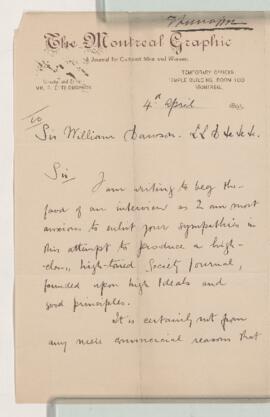 The Montreal Graphic
A Journal for Cultured Men and Women.
TEMPORARY OFFICES
TEMPLE BUILDING, ROOM
MONTREAL
4th April
To
Sir William Dawson. LL D &c &c &c.
Sir
I am writing to beg the
favor of an interview as I am most
anxious to enlist your sympathies in
this attempt to produce a high-
class, high-toned Society Journal,
founded upon high Ideals and
good principles.
It is certainly not from
any mere commercial reasons that